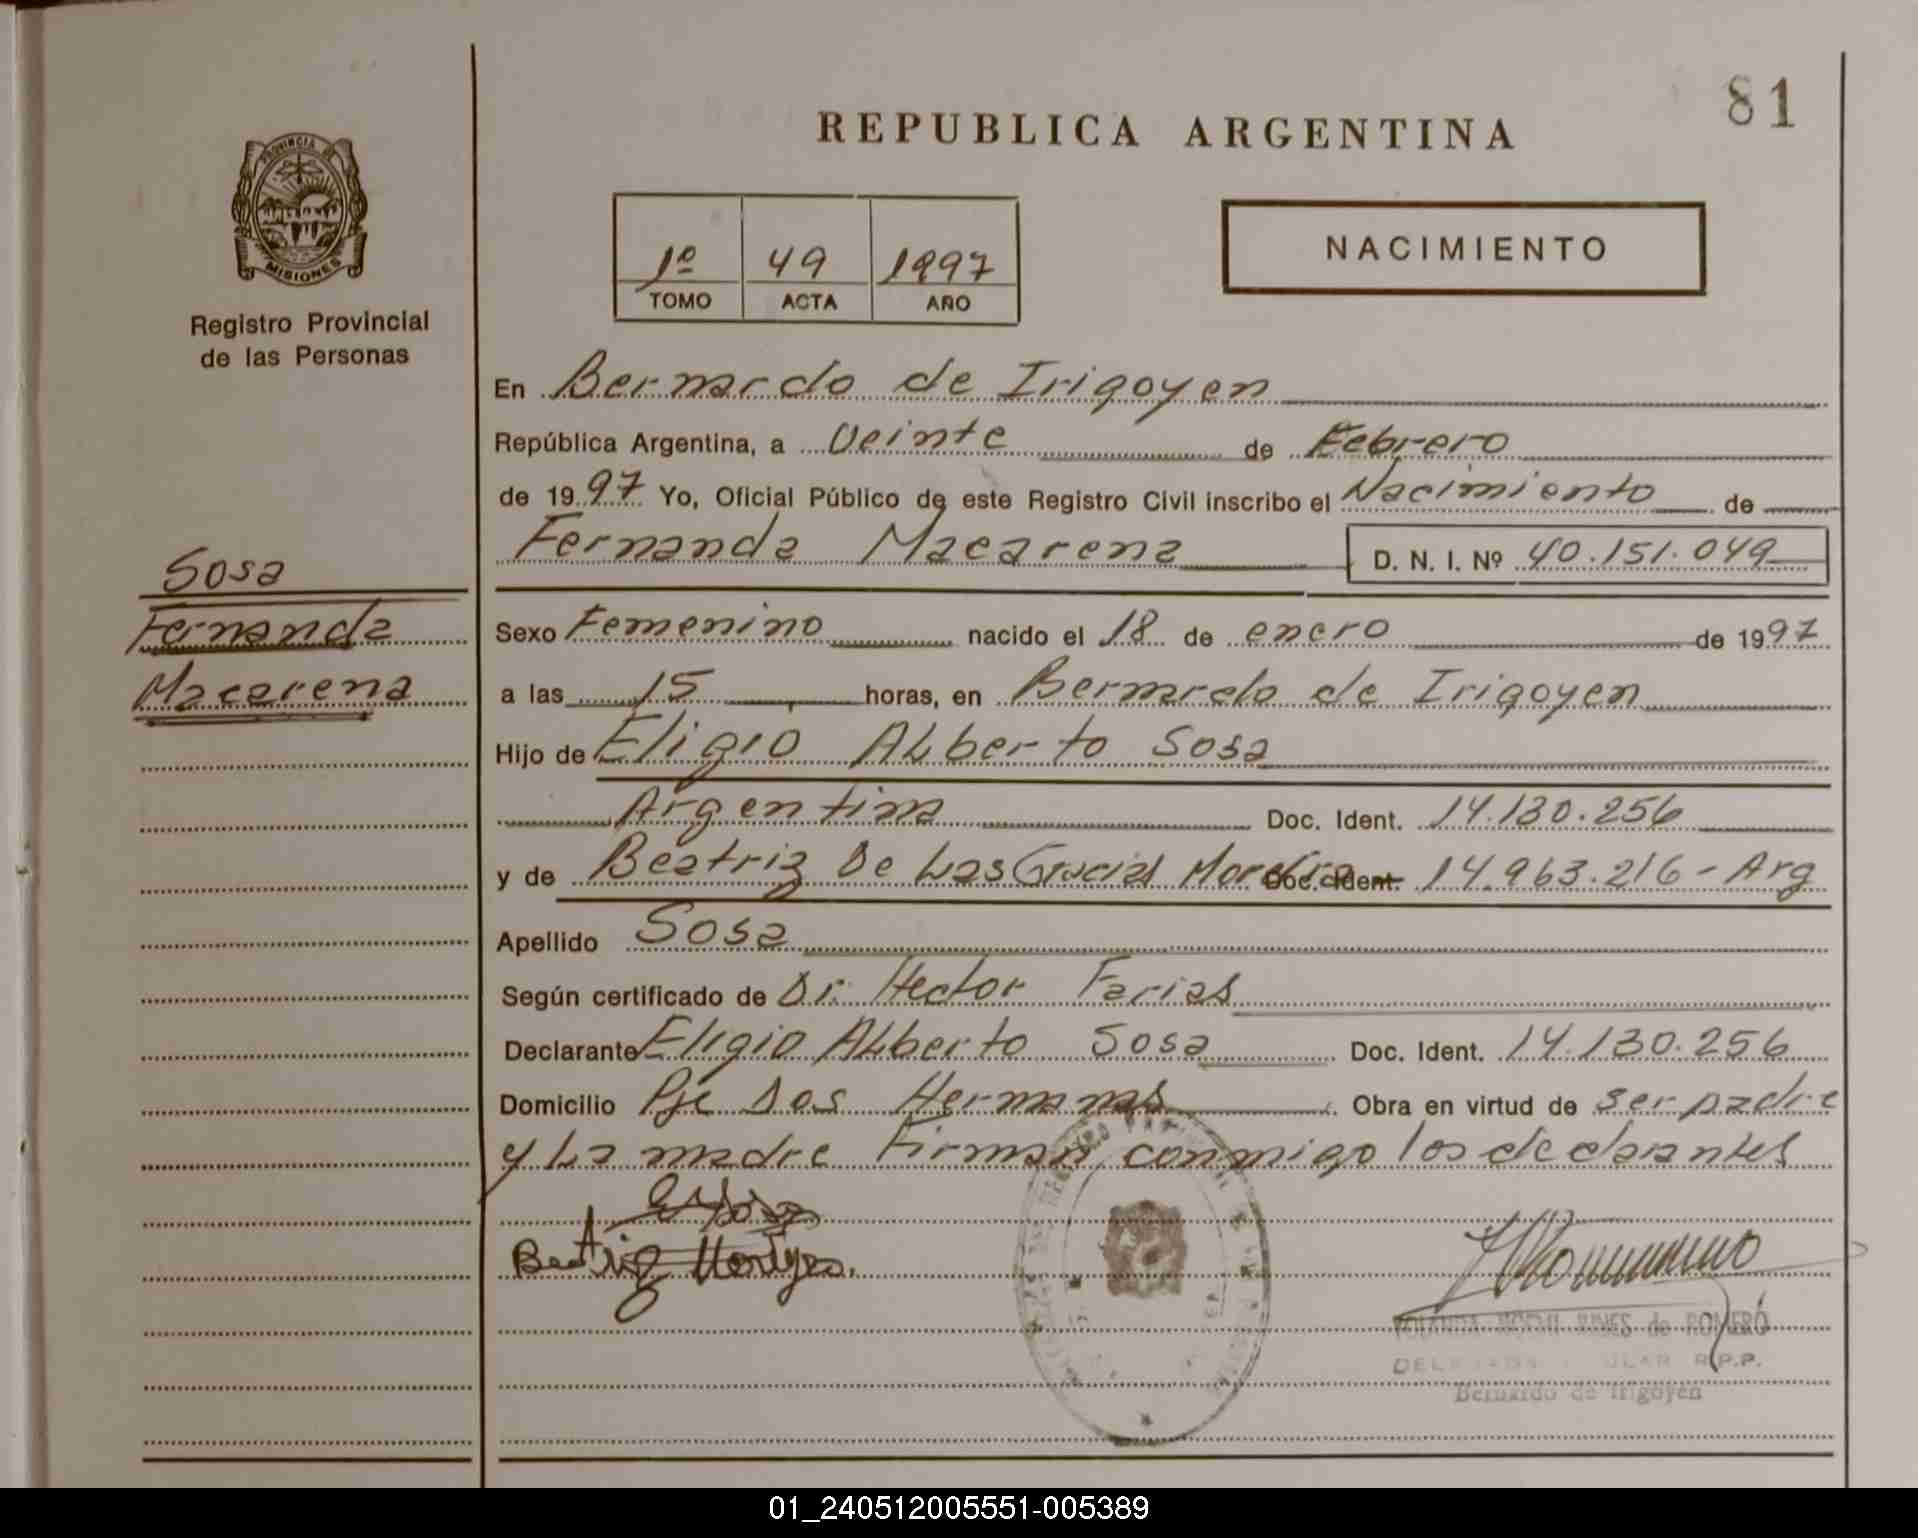 81
REPUBLICA ARGENTINA
PROVINCIA DE
MISIONES
Registro Provincial
de las Personas
1º 49 1997
TOMO ACTA AÑO
NACIMIENTO
En Bernardo de Irigoyen
República Argentina, a Veinte de Febrero
de 1997 Yo, Oficial Público de este Registro Civil inscribo el Nacimiento de
Fernanda Macarena D. N. I. Nº 40.151.049
Sosa
Fernanda
Macarena
Sexo Femenino nacido el 18 de enero de 1997
a las 15 horas, en Bernardo de Irigoyen
Hijo de Eligio ALberto Sosa
Argentina Doc. Ident. 14.130.256
y de Beatriz De Las Gracias Moreira Doc. Ident. 14.963.216 - Arg
Apellido Sosa
Según certificado de Dr. Hector Farias
Declarante Eligio ALberto Sosa Doc. Ident. 14.130.256
Domicilio Pje Dos Hermanas Obra en virtud de ser padre
y La madre Firman conmigo los declarantes
Beatriz
de ROMERO
R.P.P.
Bernardo de Irigoyen
01_240512005551-005389